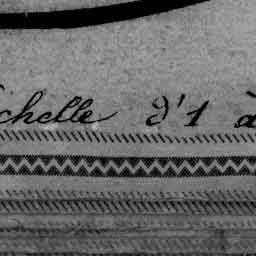 échelle d'1 à